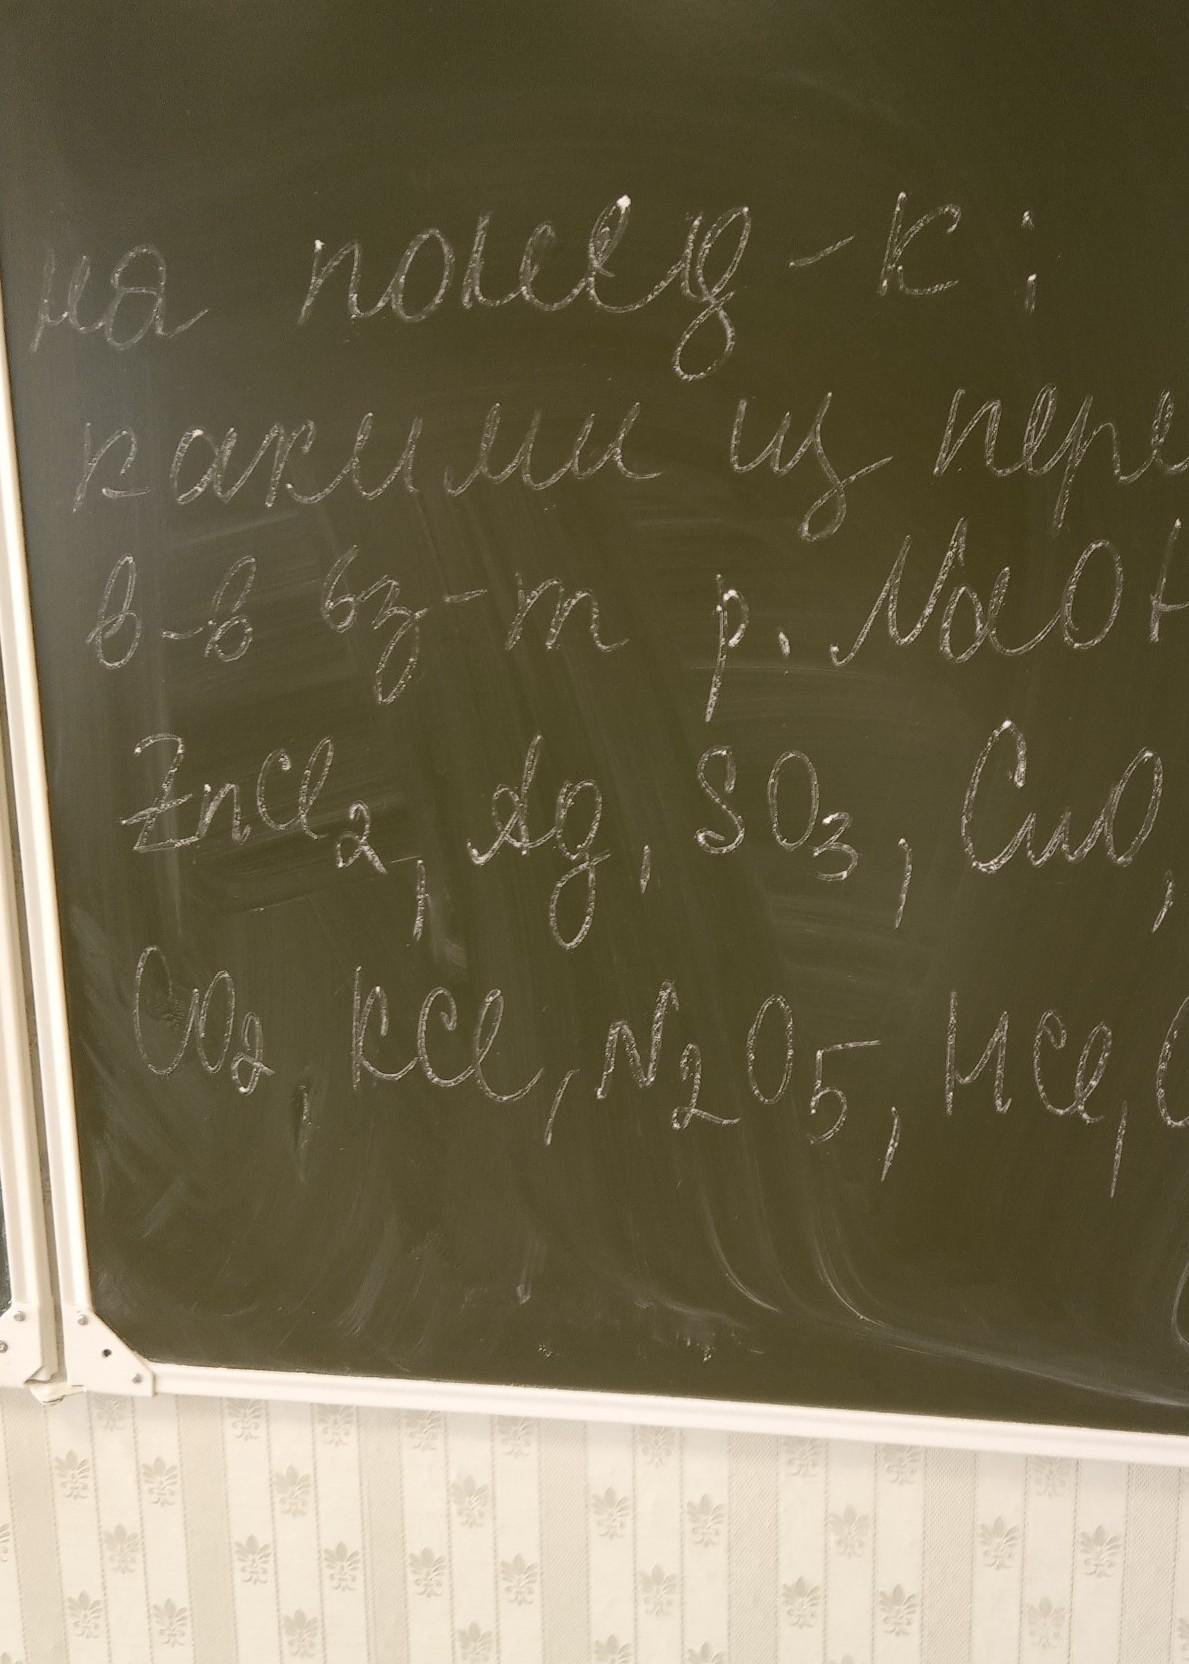 на понед-к:
какими из пере
в-в вз-т р. NaOH
ZnCl₂, Ag, SO₃, CuO,
CO₂, KCl, N₂O₅, HCl, C